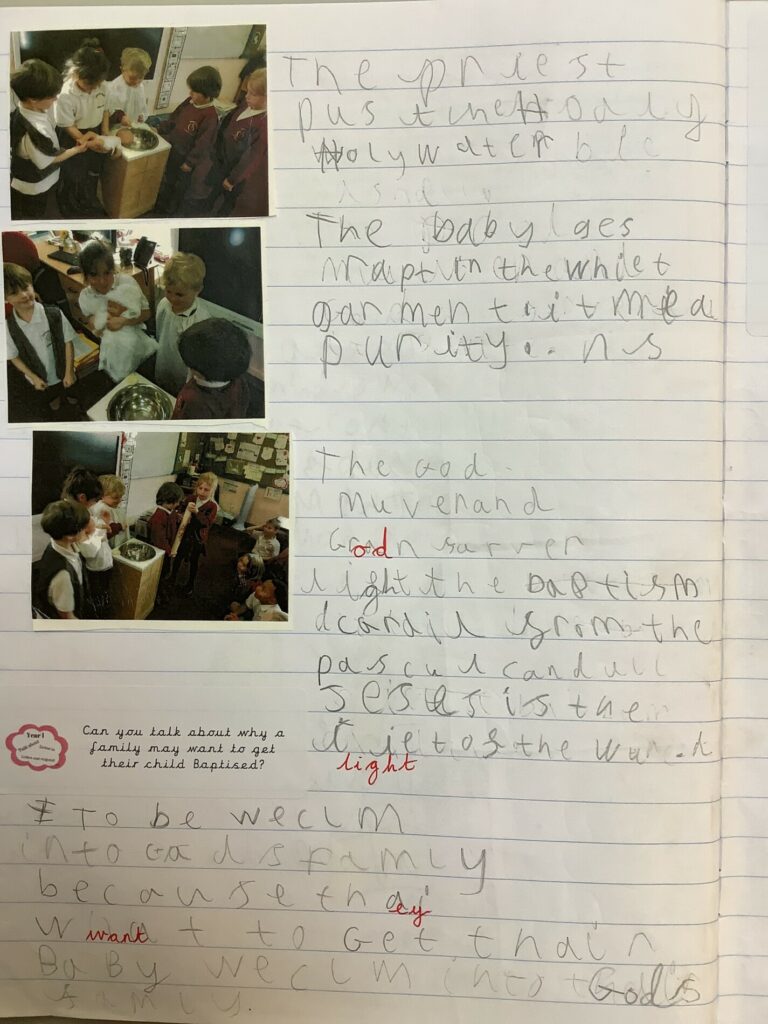 The priest
pus the Holy
Holy water
The baby ges
rapt in the whiet
garment it mea
purity. ns
The God
muver and
God
light the baptism
from the
pascul candull
Jesus is the
of the wurd
light
Year 1
Can you talk about why a
family may want to get
their child Baptised?
To be weclm
into Gods family
because thai
ey
want to Get thair
BaBy weclm into God's
family.